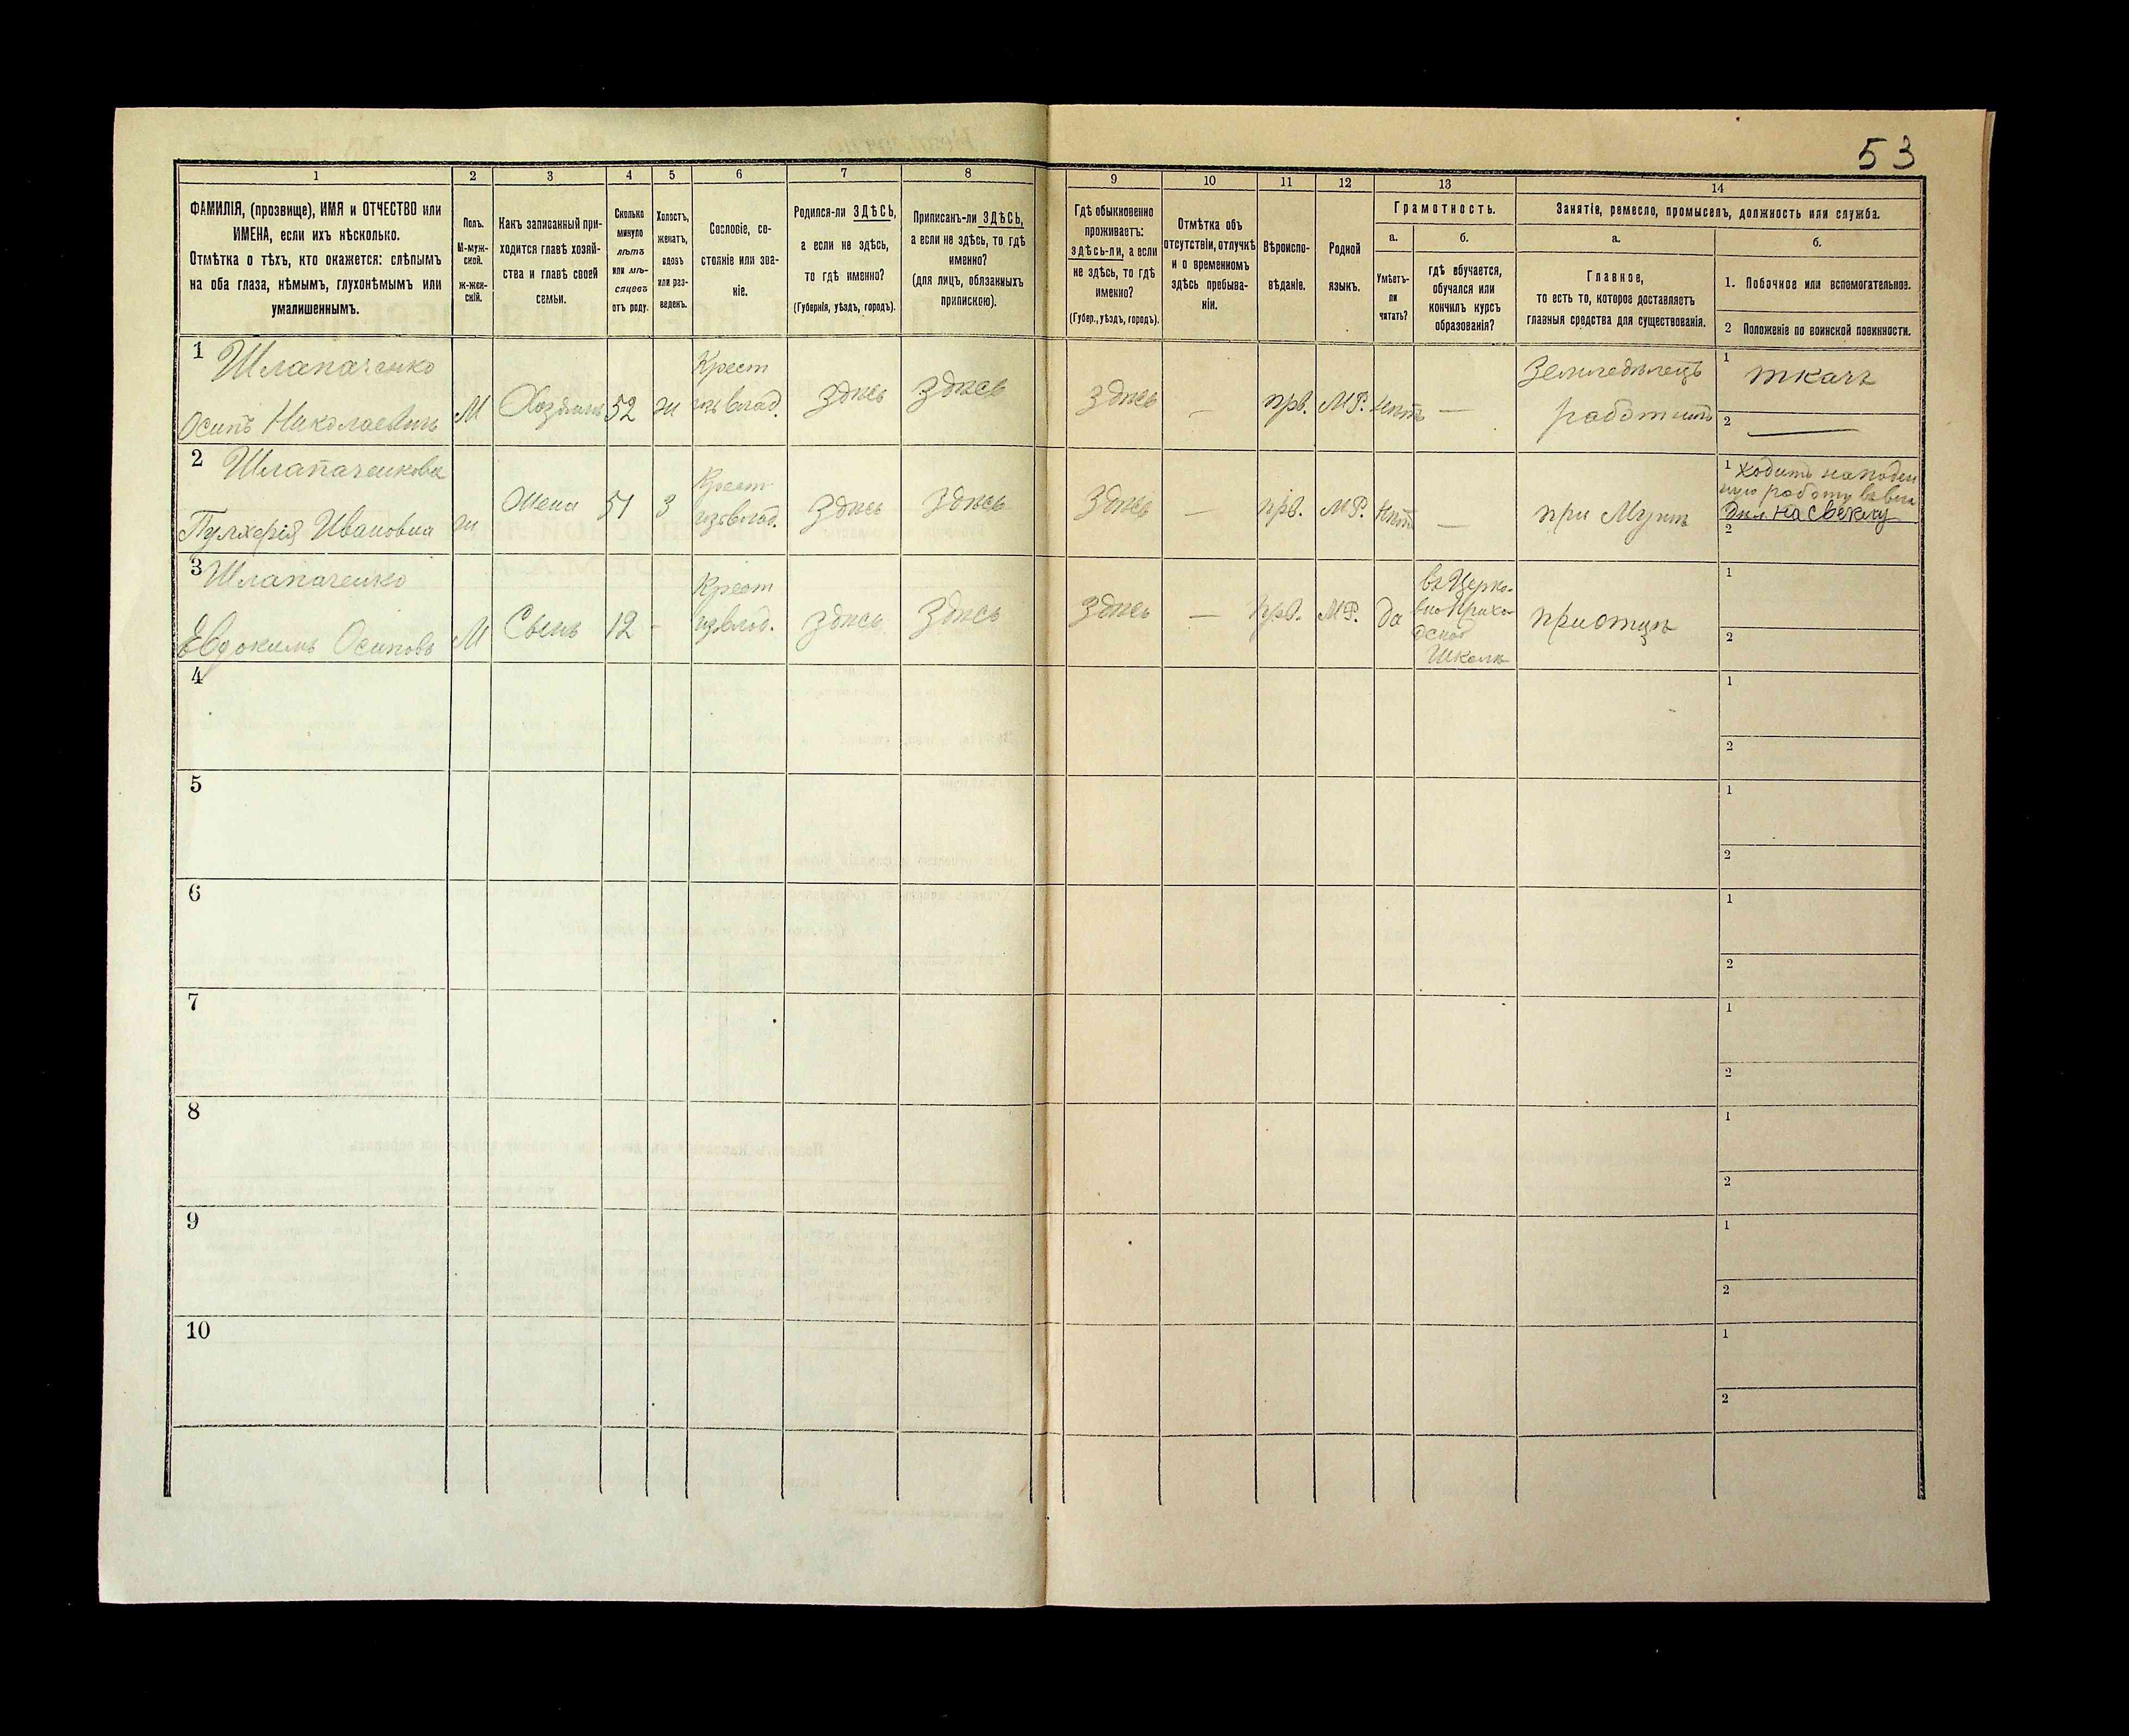 53
1
2
3
4
5
6
7
8
9
10
11
12
13
14
ФАМИЛІЯ, (прозвище), ИМЯ и ОТЧЕСТВО или
ИМЕНА, если ихъ нѣсколько.
Отмѣтка о тѣхъ, кто окажется: слѣпымъ
на оба глаза, нѣмымъ, глухонѣмымъ или
умалишеннымъ.
Полъ.
М-муж-
ской.
ж-жен-
скій.
Какъ записанный при-
ходится главѣ хозяй-
ства и главѣ своей
семьи.
Сколько
минуло
лѣтъ
или мѣ-
сяцевъ
отъ роду.
Холостъ,
женатъ,
вдовъ
или раз-
веденъ.
Сословіе, со-
стояніе или зва-
ніе.
Родился-ли ЗДѢСЬ,
а если не здѣсь,
то гдѣ именно?
(Губернія, уѣздъ, городъ).
Приписанъ-ли ЗДѢСЬ,
а если не здѣсь, то гдѣ
именно?
(для лицъ, обязанныхъ
припискою).
Гдѣ обыкновенно
проживаетъ:
здѣсь-ли, а если
не здѣсь, то гдѣ
именно?
(Губер., уѣздъ, городъ).
Отмѣтка объ
отсутствіи, отлучкѣ
и о временномъ
здѣсь пребыва-
ніи.
Вѣроиспо-
вѣданіе.
Родной
языкъ.
Грамотность.
а.
Умѣетъ-
ли
читать?
б.
гдѣ обучается,
обучался или
кончилъ курсъ
образованія?
Занятіе, ремесло, промыселъ, должность или служба.
а.
Главное,
то есть то, которое доставляетъ
главныя средства для существованія.
б.
1. Побочное или вспомогательное.
2 Положеніе по воинской повинности.
1
Шлапаченко
Осипъ Николаевичъ
М
Хозяинъ
52
ж
Крест
изъ влад.
Здѣсь
Здѣсь
Здѣсь
—
прв.
М.Р.
нѣтъ
—
Земледѣлецъ
работникъ
1
ткачъ
2
—
2
Шлапаченкова
Пулхерія Ивановна
ж
Жена
51
З
Крест
изъ влад.
Здѣсь
Здѣсь
Здѣсь
—
прв.
М.Р.
нѣтъ
—
при Мужѣ
1
ходитъ на поден
ную работу
на свеклу
2
3
Шлапаченко
Евдокимъ Осиповъ
М
Сынъ
12
-
Крест
изъ влад.
Здѣсь
Здѣсь
Здѣсь
—
прв.
М.Р.
да
въ Церко-
вно Прихо-
дской
Школѣ
при отцѣ
1
2
4
1
2
5
1
2
6
1
2
7
1
2
8
1
2
9
1
2
10
1
2